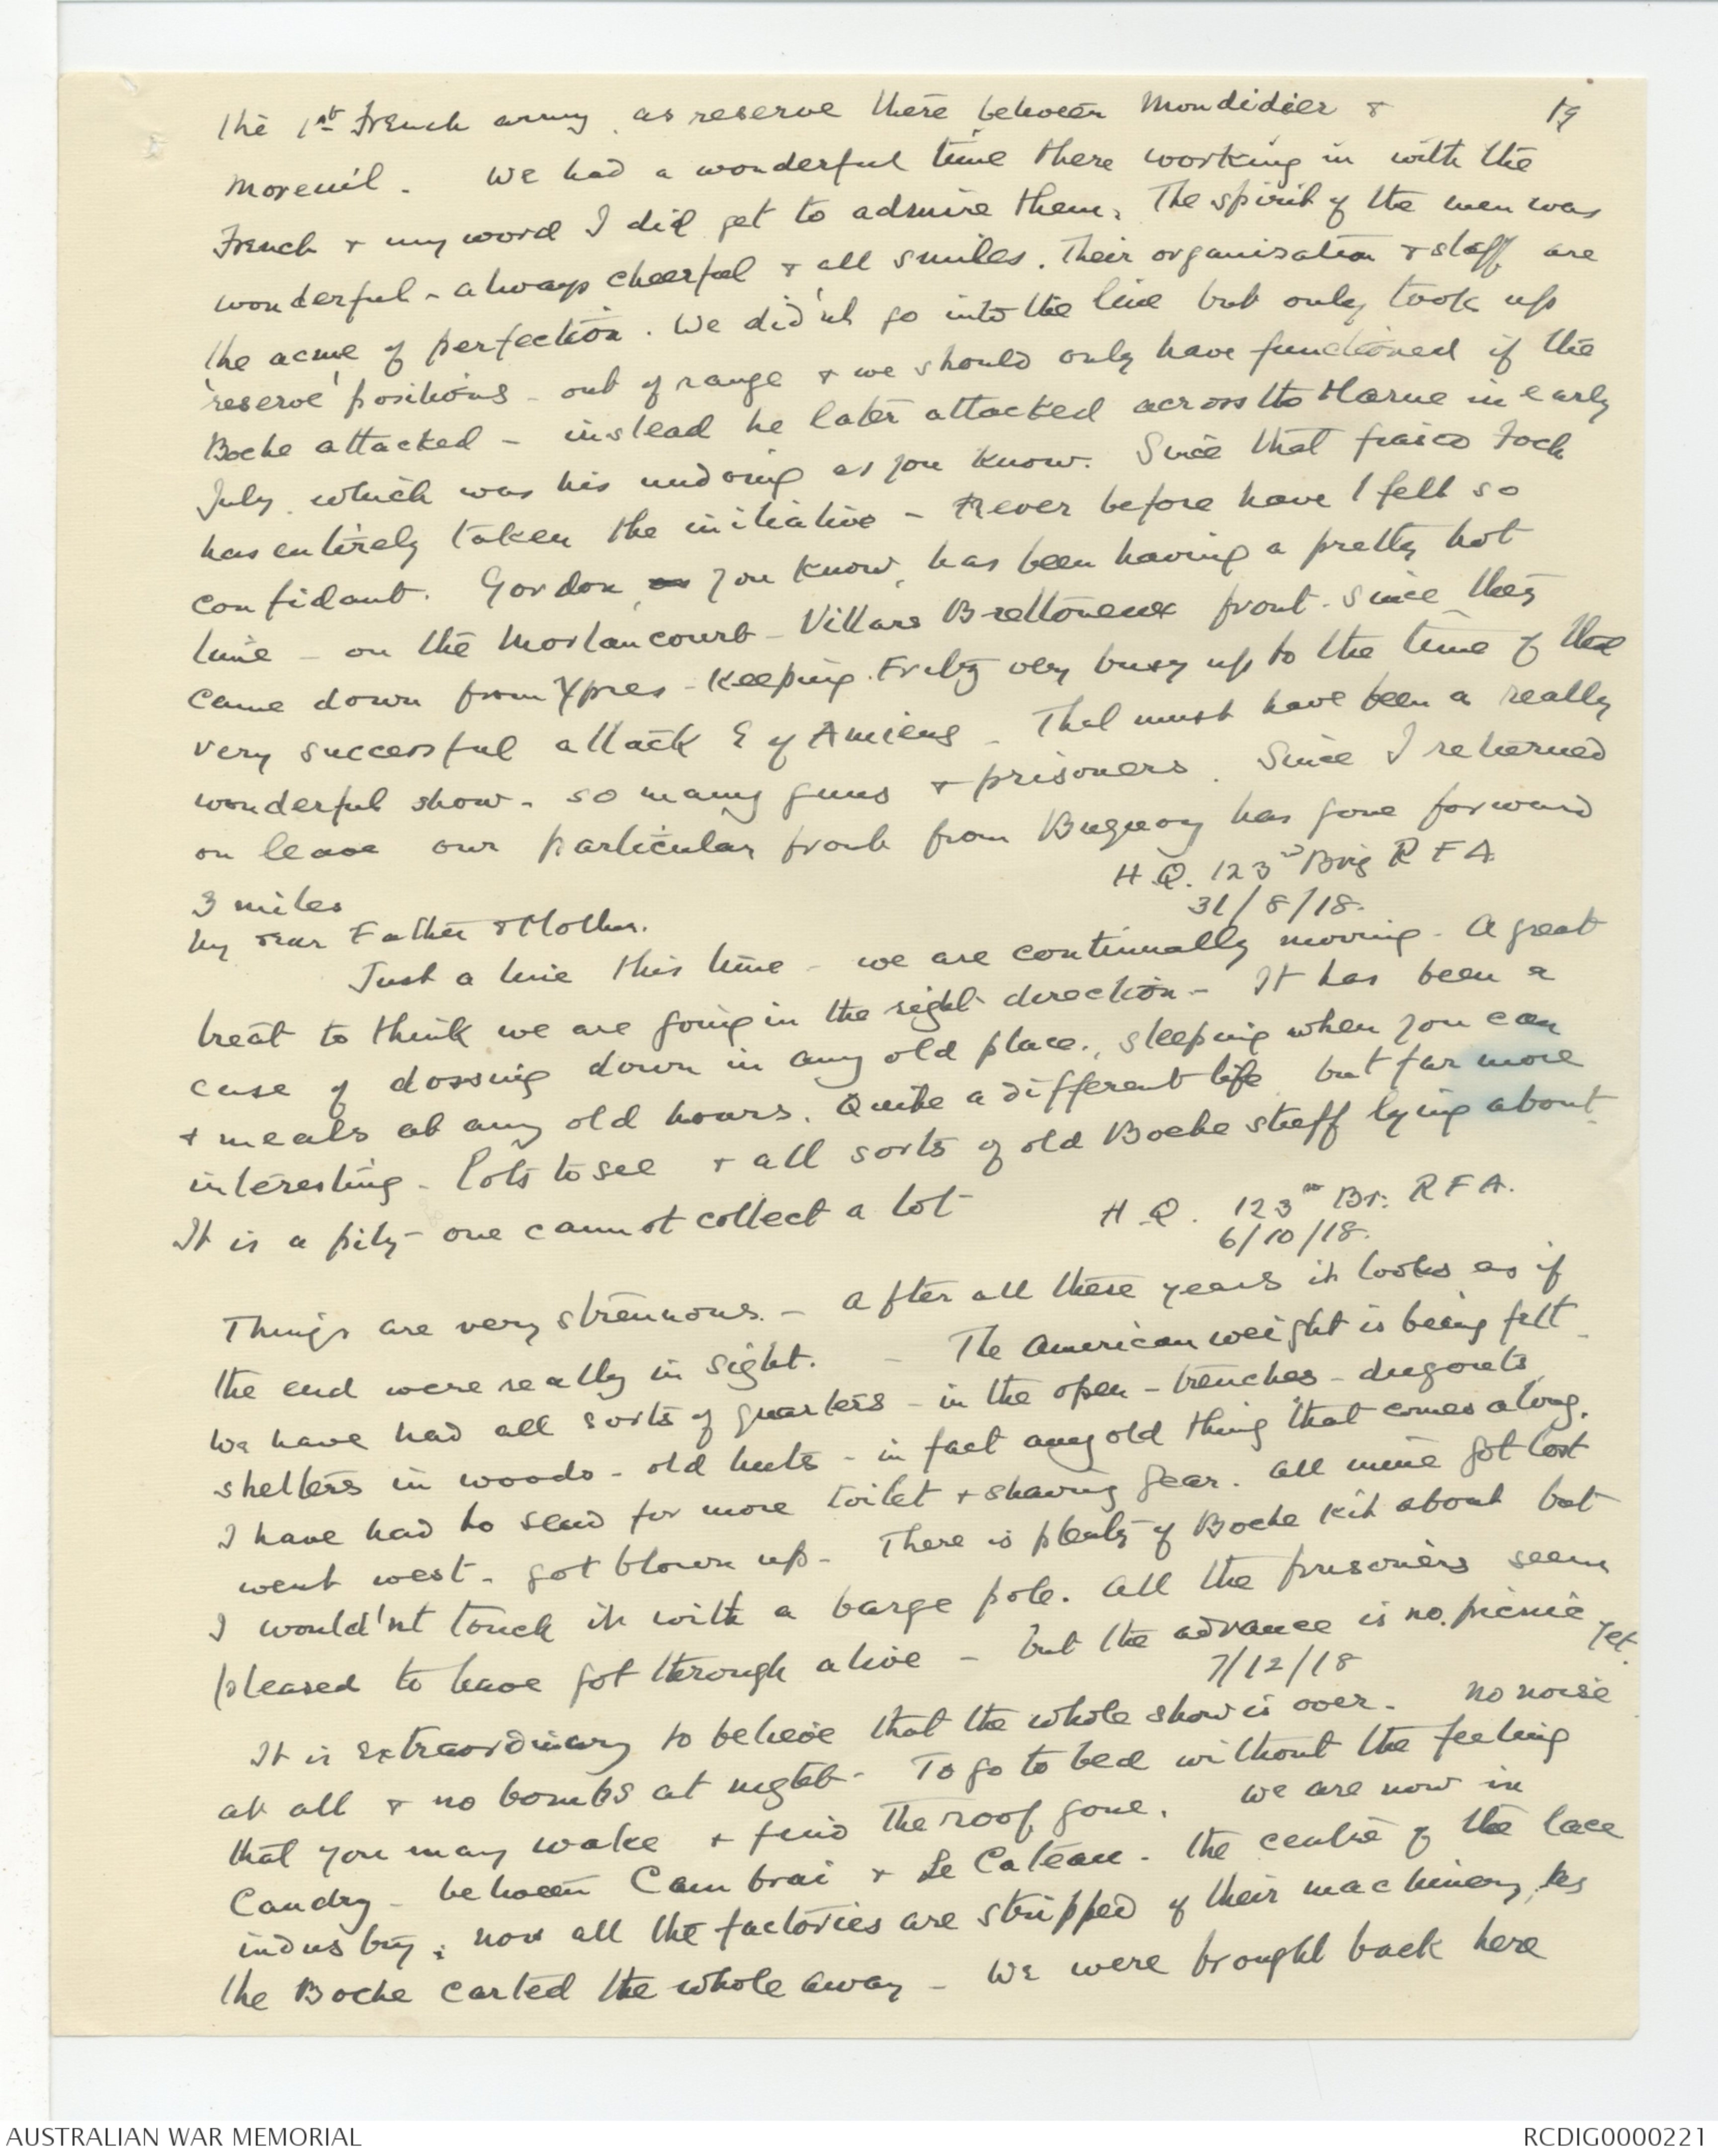 19
the 1st French army as reserve there between Mondidier &
Moreuil. We had a wonderful time there working in with the
French & my word I did get to admire them. The spirit of the men was
wonderful - always cheerful & all smiles. Their organisation & staff are
the acme of perfection. We did'nt go into the line but only took up
'reserve' positions - out of range & we should only have functioned if the
Boche attacked - instead he later attacked across the Marne in early
July which was his undoing as you know. Since that fiasco Foch
has entirely taken the initiative - Never before have I felt so
confidant. Gordon, you know, has been having a pretty hot
time - on the Morlancourt - Villars Brettoneux front. Since they
came down from Ypres - keeping Fritz very busy up to the time of the
very successful attack E of Amiens - That must have been a really
wonderful show - so many guns & prisoners. Since I returned
on leave our particular front from Buquoy has gone forward
3 miles
H.Q. 123rd Brig R F A
31/8/18.
My dear Father & Mother.
Just a line this time - we are continually moving - A great
treat to think we are going in the right direction - It has been a
case of dossing down in any old place, sleeping when you can
& meals at any old hours. Quite a different life but far more
interesting - Lots to see & all sorts of old Boche staff lying about
It is a pity - one cannot collect a lot -
H.Q. 123rd Br: R F A.
6/10/18.
Things are very strenuous - After all these years it looks as if
the end were really in sight. - The American weight is being felt -
We have had all sorts of quarters - in the open - trenches - dugouts
shelters in woods - old huts - in fact any old thing that comes along.
I have had to send for more toilet & shaving gear. All mine got lost
went west - got blown up - There is plenty of Boche kit about but
I would'nt touch it with a barge pole. All the prisoners seem
pleased to have got through alive - but the advance is no picnic yet.
7/12/18
It is extraordinary to believe that the whole show is over. No noise
at all & no bombs at night - To go to bed without the feeling
that you may wake & find the roof gone. We are now in
Caudry - between Cambrai & Le Cateau - the centre of the lace
industry; now all the factories are stripped of their machinery, as
the Boche carted the whole away - We were brought back here
AUSTRALIAN WAR MEMORIAL
RCDIG0000221